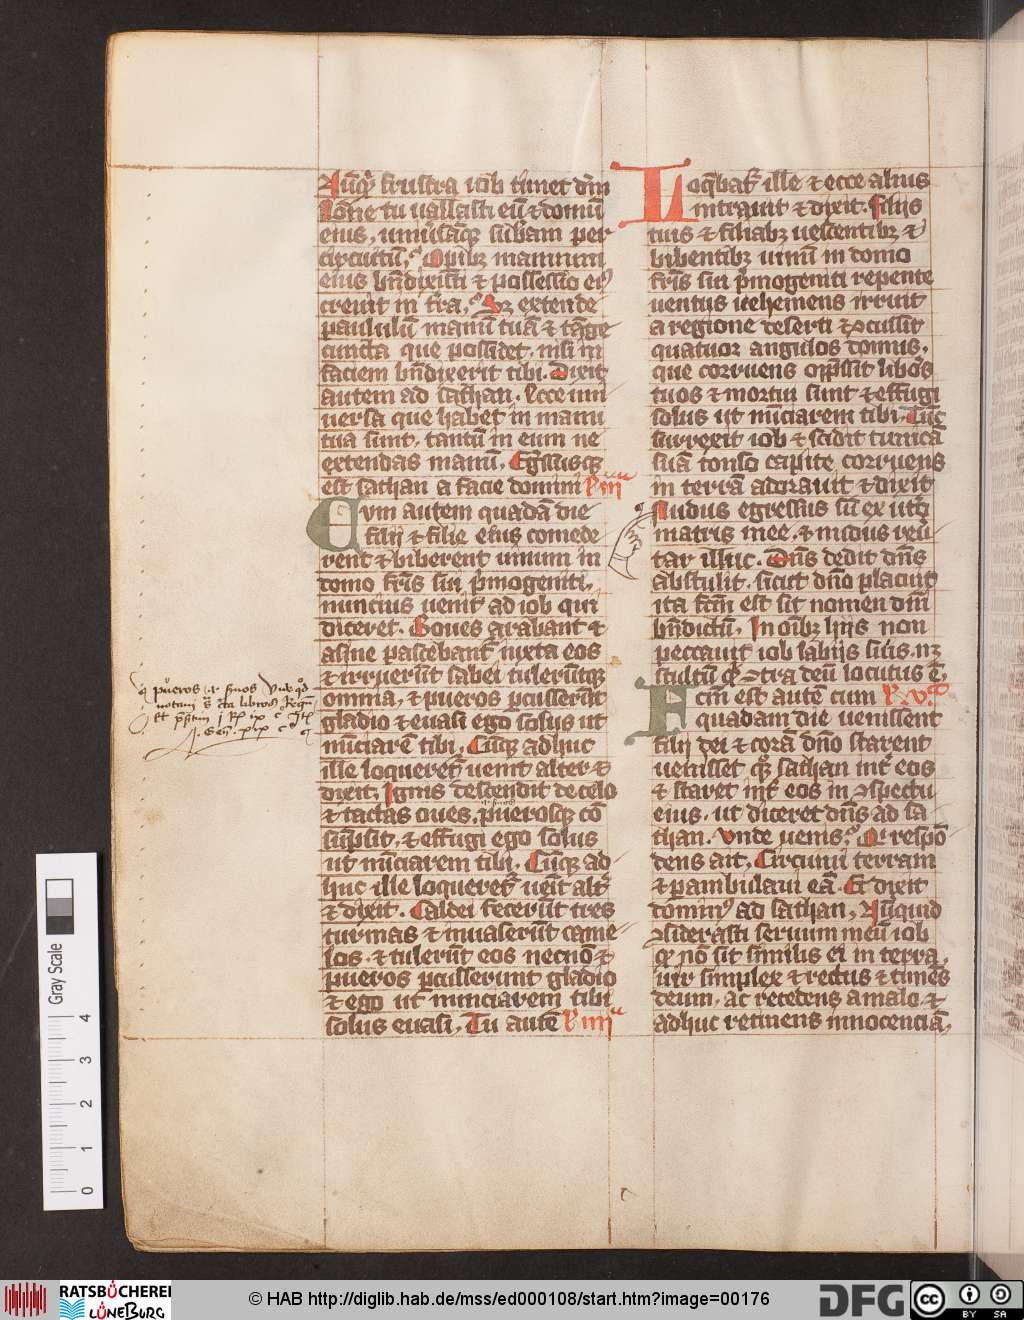 Nūq̄ frustra iob timet dm̄
Nōne tu uallasti eū ⁊ domū
eius, uniūsāq; sūbam per
circuitū, Opibz manuum
eius bn̄dixisti ⁊ possessio eiꝰ
creuit in tr̄a, Sz extende
paululū manū tuā ⁊ tāge
cuncta que possidet. nisi in
faciem bn̄dixerit tibi. Dixit
autem ad sathan. Ecce uni
uersa que habet in manu
tua sunt. tantū in eum ne
extendas manū, Eḡssusq;
est sathan a facie domini
Cvm autem quadā die
filij ⁊ filie eius comede
rent ⁊ biberent uinum in
domo fr̄is sui p̄mogeniti,
nuncius uenit ad iob qui
diceret. Boues arabant ⁊
asine pascebant̄ iuxta eos
⁊ irruerūt sabei tulerūtq;
omnia, ⁊ pueros ꝑcusserūt
gladio ⁊ euasi ego solus ut
nūciarē tibi, Cūq; adhuc
ille loqueret̄ uenit alter ⁊
dixit, Ignis descendit de celo
⁊ tactas oues, puerosq; cō
sūpsit, ⁊ effugi ego solus
ut nūciarem tibi, Cūq; ad
huc ille loqueret̄ ueīt alt̄
⁊ dixit. Caldei fecerūt tres
turmas ⁊ inuaserūt came
los, ⁊ tulerūt eos necnō ⁊
pueros ꝑcusserunt gladio
⁊ ego ut nunciarem tibi
solus euasi, Tu autē
Loq̄bat̄ ille ⁊ ecce alius
intrauit ⁊ dixit. filijs
tuis ⁊ filiabz uescentibz ⁊
bibentibz uinū in domo
fr̄is sui p̄mogeniti repente
uentus uehemens irruit
a regione deserti ⁊ ꝯcussit
quatuor angulos domus,
que corruens opp̄ssit libōs
tuos ⁊ mortui sunt ⁊ effugi
solus ut nūciarem tibi. Tūc
surrexit iob ⁊ scidit tunicā
suā tonso capite corruens
in terrā adorauit ⁊ dixit
Nudus egressus sū ex ut̄o
matris mee, ⁊ nudus reu̾
tar illuc. Dn̄s dedit dn̄s
abstulit, sicut dn̄o placuit
ita fc̄m est sit nomen dn̄i
bn̄dictū, In oībz hijs non
peccauit iob labijs suis, nz
stultū q̄ ꝯtra deū locutus ē,
Fcm̄ est autē cum
quadam die uenissent
filij dei ⁊ corā dn̄o starent
uenisset qz sathan int̄ eos
⁊ staret int̄ eos in ꝯspectu
eius, ut diceret dn̄s ad sa
than. Vnde uenis, Qi respō
dens ait, Circuiui terram
⁊ ꝑambulaui eā. Et dixit
dominꝰ ad sathan, Nūquid
ꝯsiderasti seruum meū iob
qz nō sit similis ei in terra,
uir simplex ⁊ rectus ⁊ timēs
deum, ac recedens a malo, ⁊
adhuc retinens innocenciā,
Gray Scale
0 1 2 3 4
RATSBÜCHEREI
LÜNEBURG
© HAB http://diglib.hab.de/mss/ed000108/start.htm?image=00176
DFG
cc BY SA